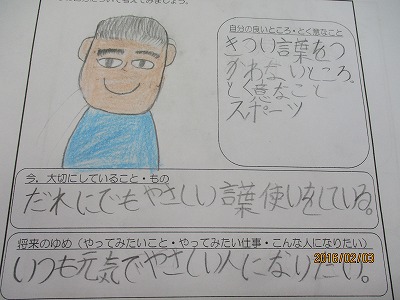 自分の良いところ・とく意なこと
きつい言葉をつ
かわないところ。
とく意なこと
スポーツ
今、大切にしていること・もの
だれにでもやさしい言葉使いをしている。
将来のゆめ（やってみたいこと・やってみたい仕事・こんな人になりたい）
いつも元気でやさしい人になりたい。
2016/02/03